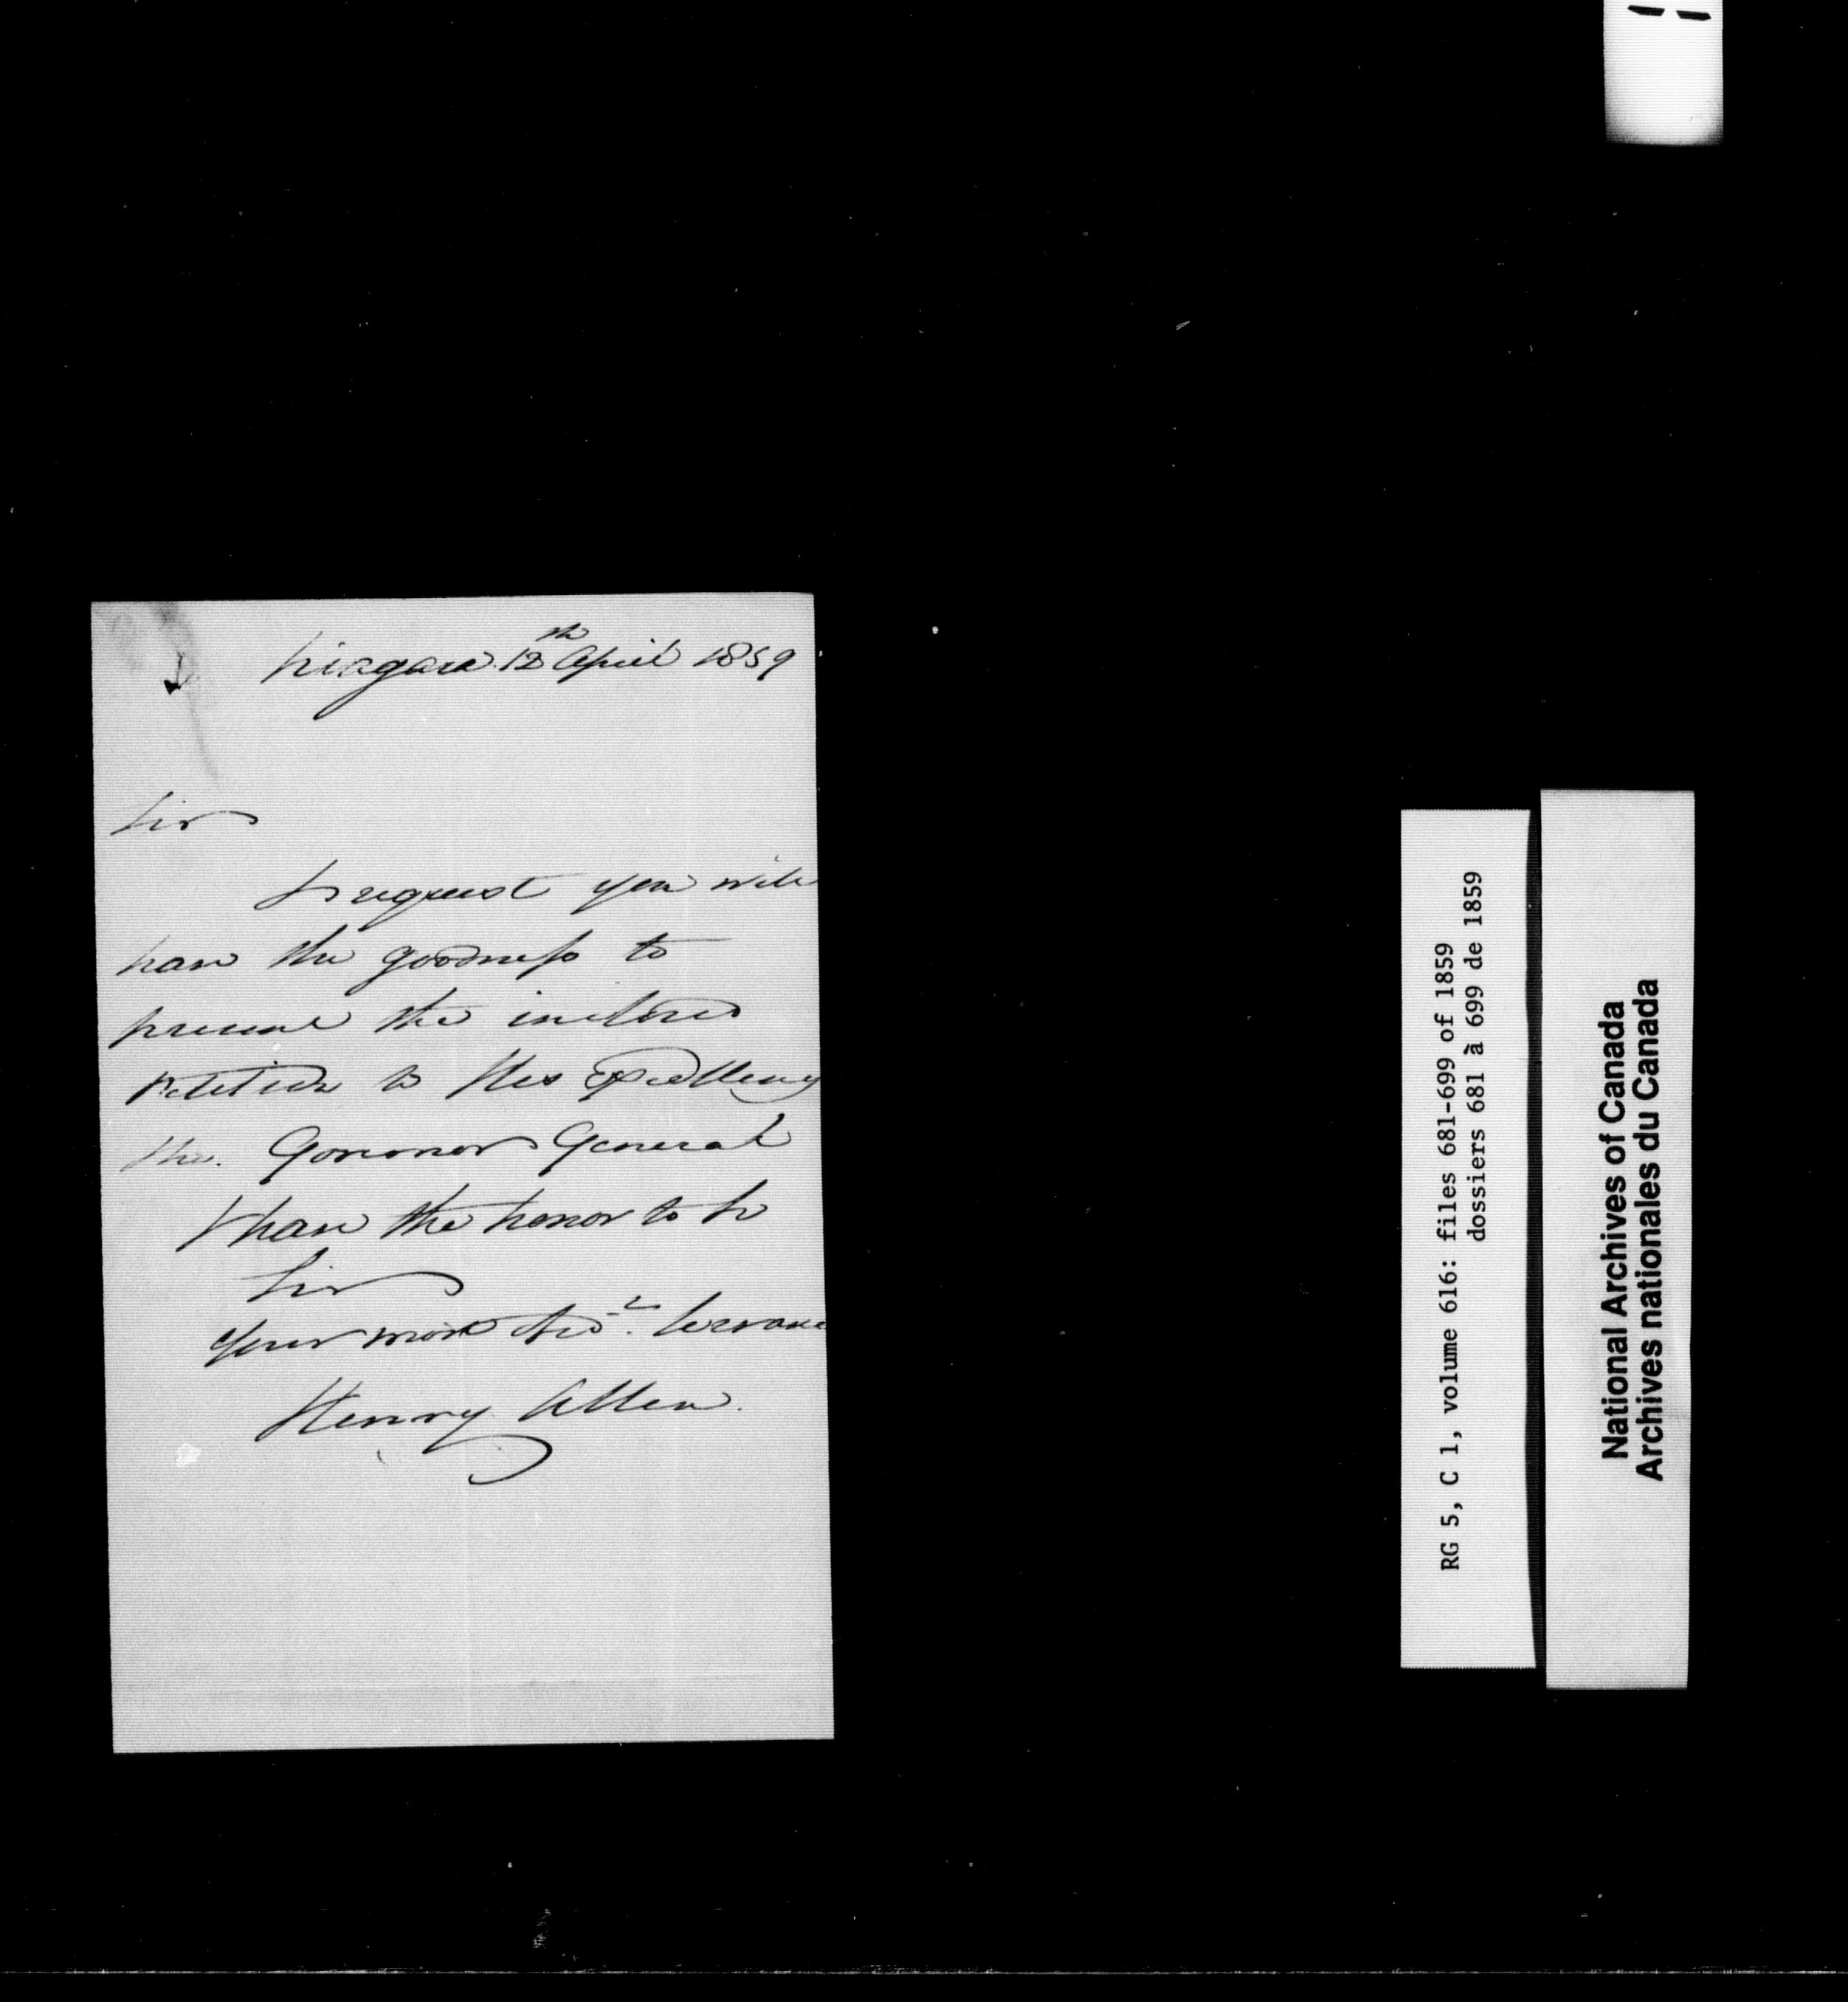 Niagara 12th April 1859
Sir
I request you will
have the goodness to
present the inclosed
Petition to His Excellency
the Governor General
I have the honor to be
Sir
Your most obt. Servant
Henry Allen.
RG 5, C 1, volume 616: files 681-699 of 1859
dossiers 681 à 699 de 1859
National Archives of Canada
Archives nationales du Canada